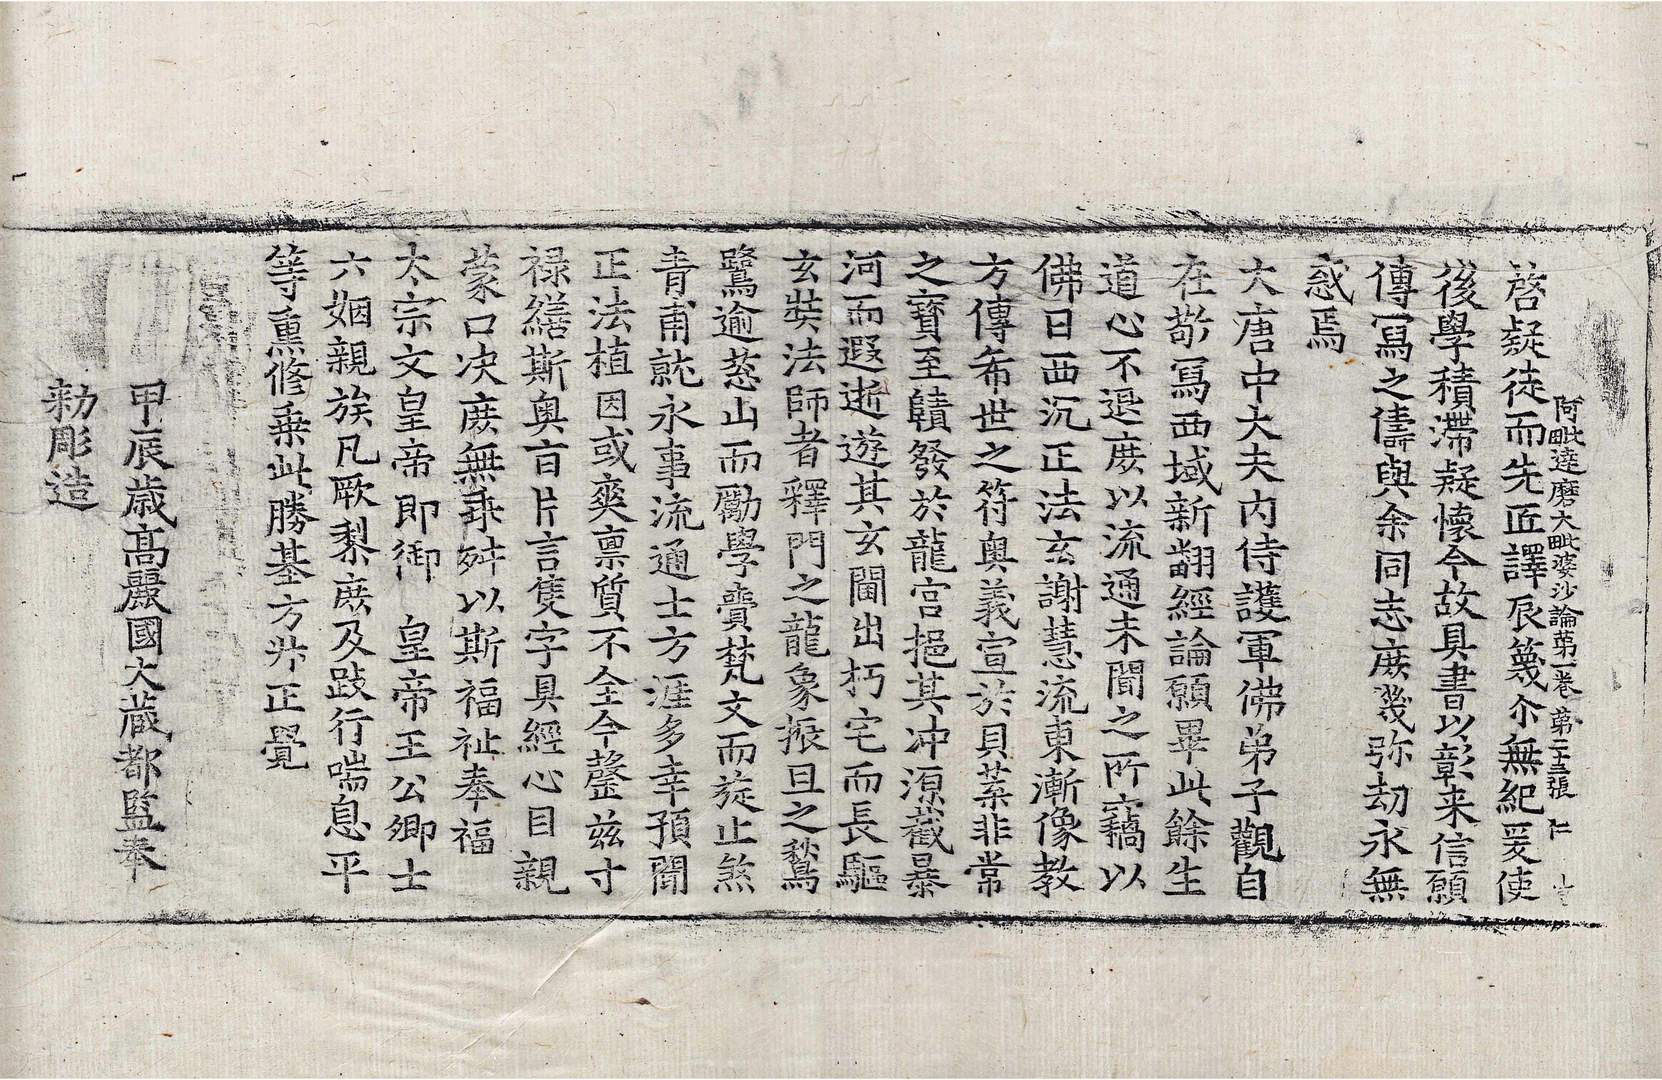 啓疑徒而先匠譯辰篾尒無紀爰使
後學積滯疑懷今故具書以彰来信願
傳寫之儔與余同志庶幾弥劫永無
惑焉
大唐中大夫内侍護軍佛弟子觀自
在敬寫西域新翻經論願畢此餘生
道心不退庶以流通未聞之所竊以
佛日西沉正法玄謝慧流東漸像教
方傳布世之符奥義宣於貝葉非常
之寶至賾發於龍宫挹其冲源截暴
河而遐逝遊其玄閫出朽宅而長驅
玄奘法師者釋門之龍象振旦之鶖
鷺逾葱山而勵學賷梵文而旋止煞
青甫就永事流通士方涯多幸預聞
正法植因或爽禀質不全今罄兹寸
禄繕斯奥旨片言隻字具經心目親
蒙口决庶無乖舛以斯福祉奉福
太宗文皇帝即御 皇帝王公卿士
六姻親族凡厥黎庶及跂行喘息平
等熏修乗此勝基方升正覺
甲辰歳髙麗國大藏都監奉
勅彫造
阿毗達磨大毗婆沙論第一卷 第二十三張 仁